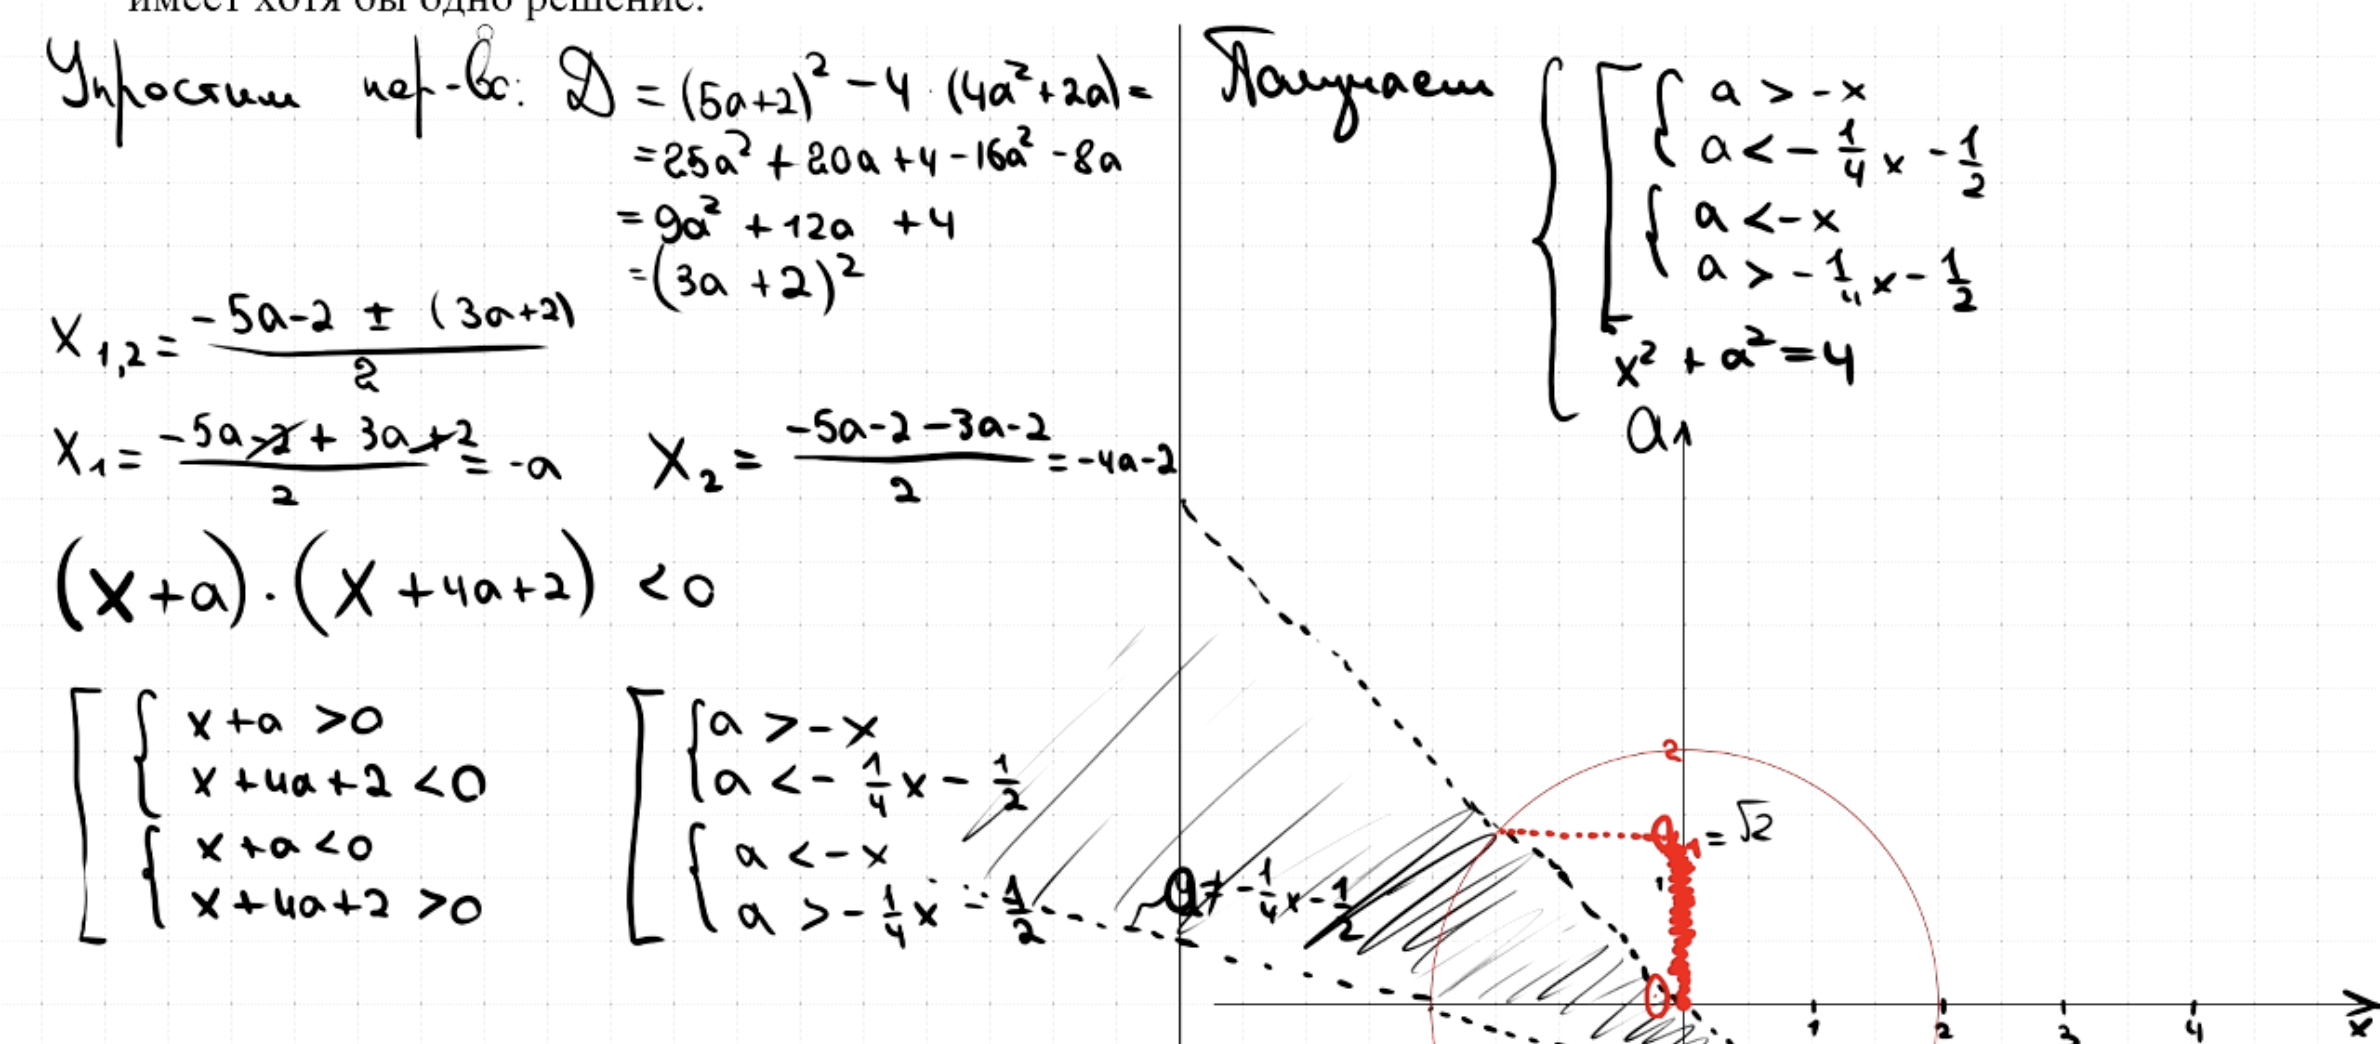 имеет хотя бы одно решение.
Упростим нер-во: D = (5a+2)² − 4 · (4a²+2a) =
= 25a² + 20a + 4 − 16a² − 8a
= 9a² + 12a + 4
= (3a + 2)²
x₁,₂ = (−5a−2 ± (3a+2))/2
x₁ = (−5a−2 + 3a+2)/2 = −a
x₂ = (−5a−2−3a−2)/2 = −4a−2
(x+a) · (x+4a+2) < 0
[ { x+a > 0
x+4a+2 < 0
{ x+a < 0
x+4a+2 > 0
[ { a > −x
a < − 1/4 x − 1/2
{ a < −x
a > − 1/4 x − 1/2
Получаем { [ { a > −x
a < − 1/4 x − 1/2
{ a < −x
a > − 1/4 x − 1/2
x² + a² = 4
a
2
= √2
1
−1/4 x − 1/2
0
1 2 3 4
x